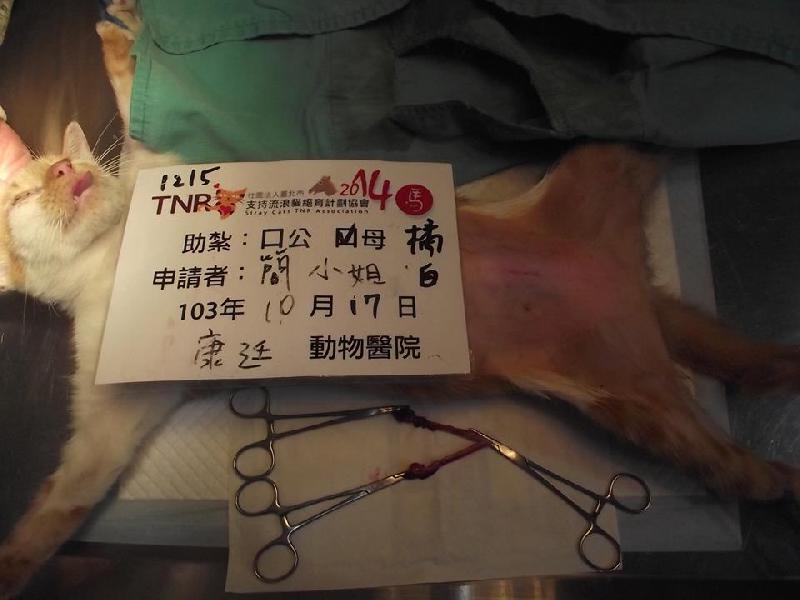 1215
TNR 社團法人臺北市 2014 馬
支持流浪貓絕育計劃協會
Stray Cats TNR Association
助紮：口公 ☑母 橘
申請者：簡 小姐 白
103年 10月17日
康廷 動物醫院